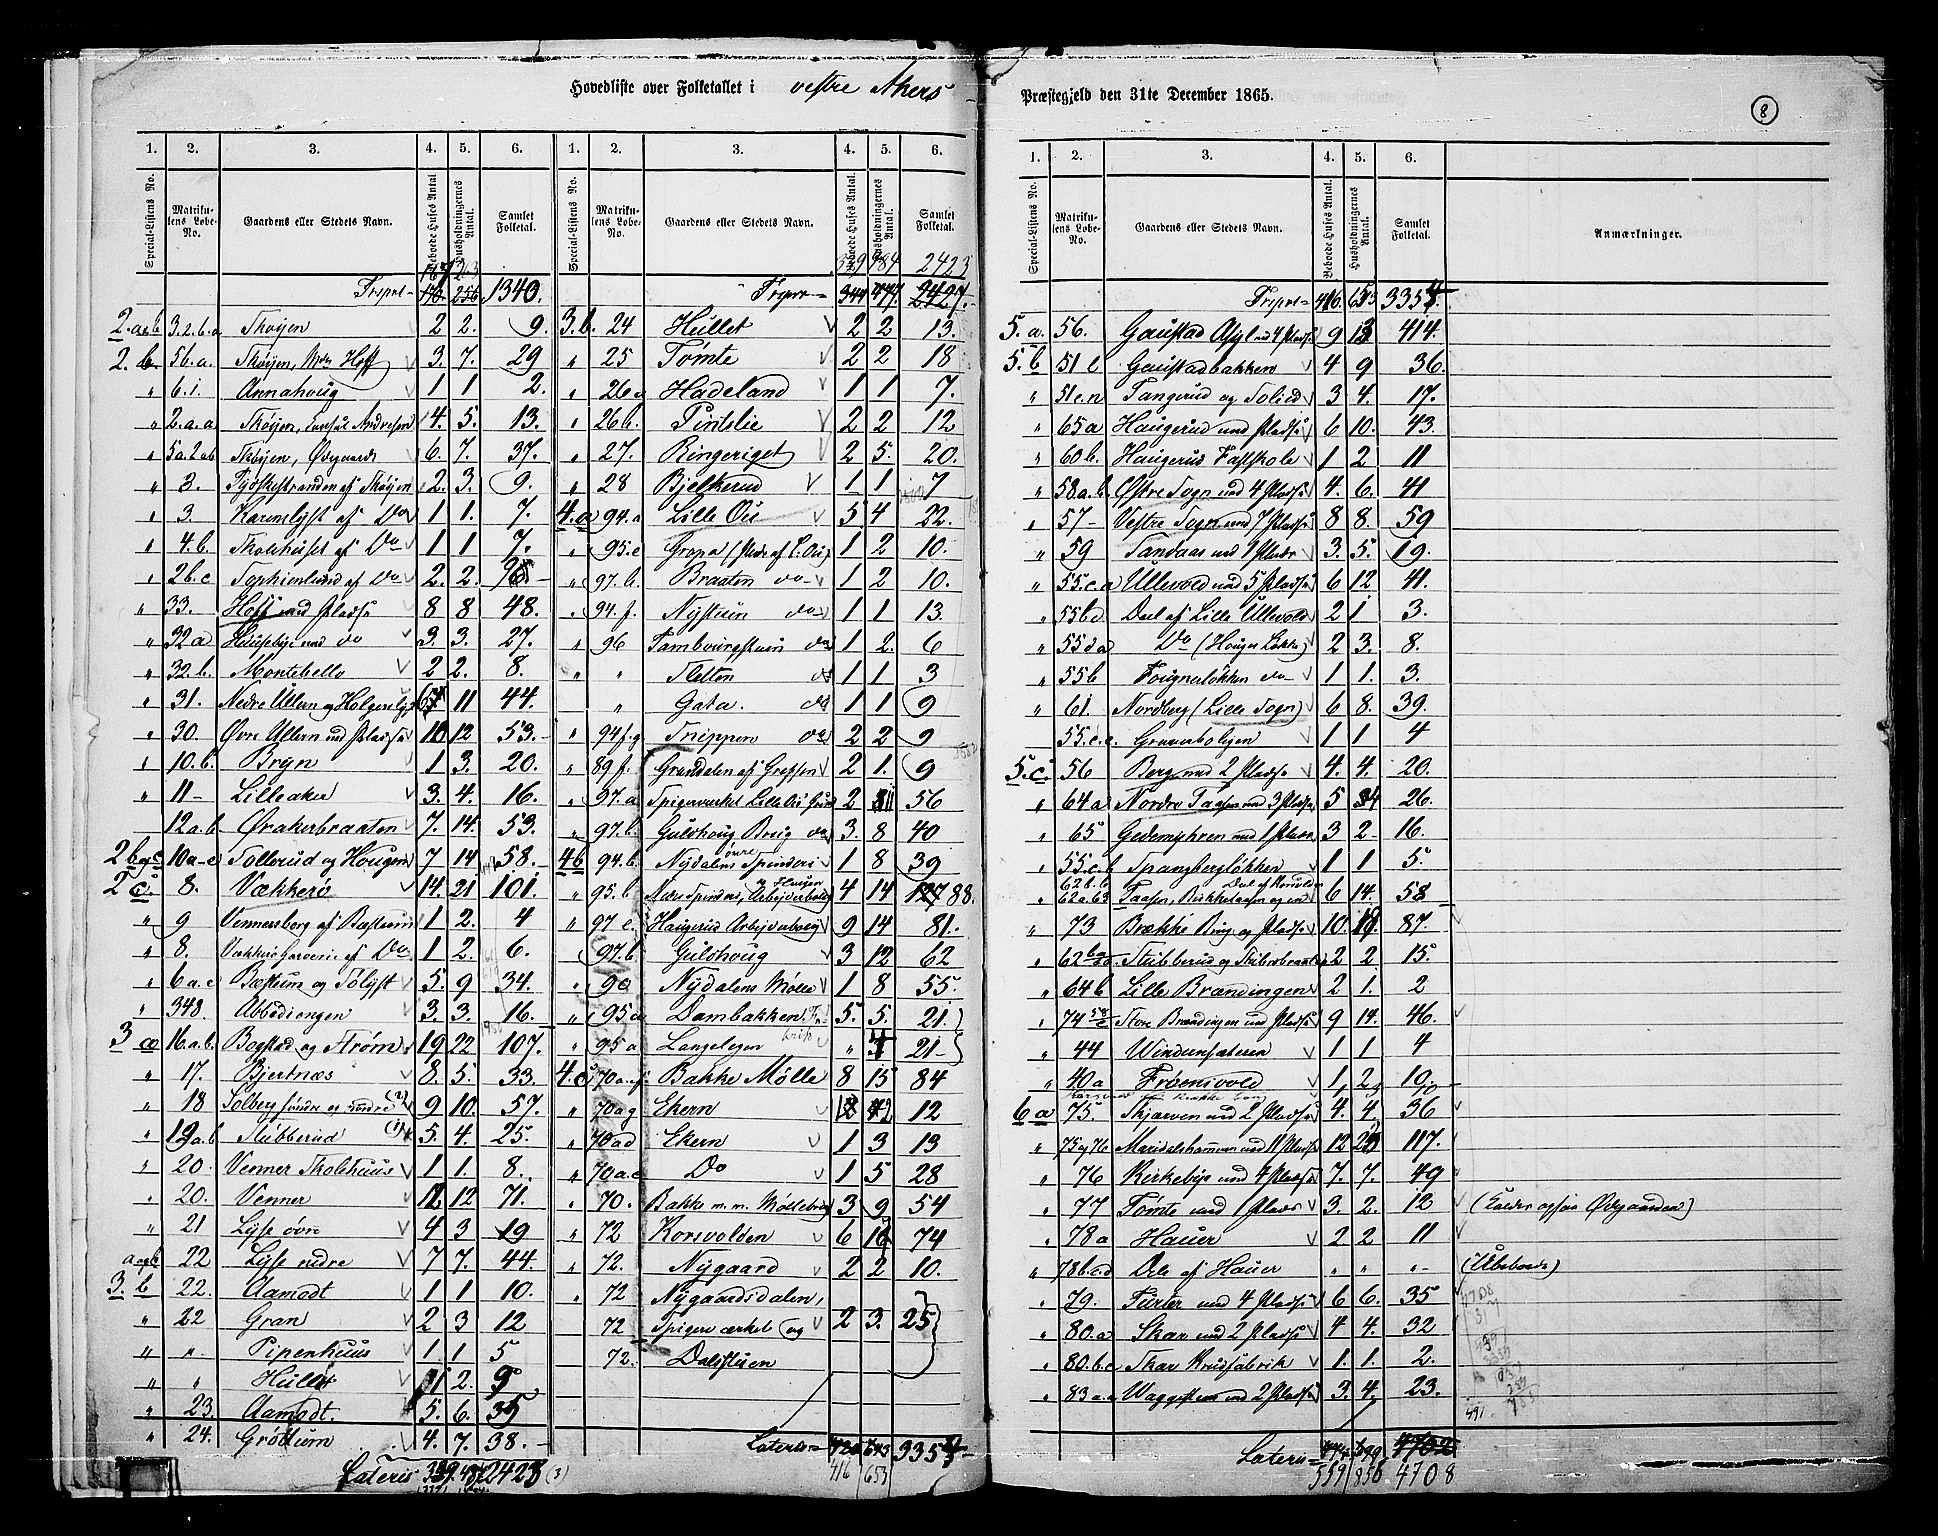 Hovedliste over Folketallet i vestre Akers Præstegjeld den 31te December 1865.
8
1. 2. 3. 4. 5. 6. 1. 2. 3. 4. 5. 6.
Special-Listens No. Matrikulens Løbe-No. Gaardens eller Stedets Navn. Beboede Huses Antal Husholdningernes Antal. Samlet Folketal.
Transport 1340.
2. 3.2.b.a Skøyen 2 2. 9.
2. b. 5b.a. Skøyen, Hoff 3. 7. 29
" 6.i. Annahoug 1 1 2.
" 2.a.a Skøyen, Consul Andresen 4. 5. 13.
" 5a.2ab Skøyen, Øvregaard 6. 7. 37.
" 3. Tydskestranden af Skøyen 2. 3. 9.
" 3. Karenslyst af Do 1 1. 7.
" 4.b. Skolehuset af Do 1 1 7.
" 2b.c Sophienlund af Do 2. 2.
" 33. Hoff med Pladse 8 8 48.
" 32a Husebye med do 3. 3. 27.
" 32.b. Montebello 2 2. 8.
" 31. Nedre Ullern og Holgerslyst 11 44.
" 30. Øvre Ullern med Pladse 10 12 53.
" 10.b. Bryn 1 3. 20.
" 11- Lilleaker 3. 4. 16.
12a.b Ørakerbraaten 7. 14. 53.
2b og c 10a-e Sollerud og Hougen 7 14 58.
2 c. 8. Vækkerø 14. 21 101.
" 9 Vennersborg af Bestum 1 2. 4
" 8. Vækkerø Garveri af Do 1 2. 6.
" 6a.c Bestum og Sølyst 5. 9 34.
" 348 Abbediengen 3. 3. 16.
3 a 16.a.b. Bogstad og Strøm 19 22 107.
" 17. Bjertnæs 8. 5. 33.
" 18 Solberg søndre og nordre 9 10. 57.
" 19a.b Stubberud 5. 4. 25.
" 20. Venner Skolehuus 1 1. 8.
" 20. Venner 12 12 71.
" 21 Lysse øvre 4 3 19
a og b 22 Lysse nedre 7 7. 44.
3. b 22. Aamodt 1 1 10.
" 22 Gran 2 3 12
" " Pipenhuus 1. 1 5
" " Hullet 1 2. 9
" 23. Aamodt. 5. 6. 35
" 24. Grøttum 4. 7. 38.
Lateris 2423
2423
Transport
3.b. 24 Hullet 2 2 13.
" 25 Tømte 2 2 18
" 26a Hadeland 1 1 7.
" 26b. Pintslie 2 2 12
" 27. Ringeriget 2 5. 20.
" 28 Bjelkerud 1 1 7
4.a 94.a Lille Oii 5 4 22.
" 95.c Gropa (Plads af L. Oii) 1 2 10.
" 97.b. Braaten do 1 2 10.
" 94.f. Nystuen do 1 1 13
" 96 Tambourgstuen do 1 2. 6
" " Sletten do 1 1 3
" Gata. do 1 1 9
" 94f.g Snippen do 2 2 9
" 89f. Grandalen af Grefsen 2 1. 9
" 97.a Spigerverket Lille Oii Grund 2 11 56
" 97.b. Guldhoug Brug do 3. 8 40
4b 94.b. Nydalens øvre Spinderi 1 8 39
" 95.b Nedre Spinderi, Arbeiderbolig 4 14 88.
" 97 c. Haugerud Arbeiderbolig 9 14 81.
" 97.b Guldhoug 3 12 62
" 98 Nydalens Mølle 1 8 55.
" 95a Dambakken 5. 5. 21.
" 95a Langelegen " 21
4.c 70a.f. Bakke Mølle 8 15 84
" 70ag Ekern 2 12
" 70ad Ekern 1 3 13
" 70a.e Do 1 5 28
" 70. Bakke m. m. Møllebrug 3 9 54
" 72 Korsvolden 6 16 74
" 72. Nygaard 2 2 10.
" 72 Nygaardsdalen,
72 Spigerværket og 2 3. 25
72. Dalstuen
Lateris 3354
416 653
1. 2. 3. 4. 5. 6.
Special-Listens No. Matrikulens Løbe-No. Gaardens eller Stedets Navn. Beboede Huses Antal. Husholdningernes Antal. Samlet Folketal. Anmærkninger.
Transport 416. 653 3354.
5.a. 56. Gaustad Asyl med 4 Pladse 9 13 414.
5.b 51 b Gaustadbakken 4 9 36.
" 51c.n Tangerud og Solied 3 4. 17.
" 65a Haugerud med Pladse 6 10. 43.
" 60b. Haugerud Fastskole 1 2 11
" 58.a.b. Østre Sogn med 4 Pladse 4. 6. 41
" 57- Vestre Sogn med 7 Pladse 8 8. 59
" 59 Sandaas med 1 Plads 3. 5. 19.
" 55.c.a Ullevold med 5 Pladse 6 12 41.
" 55bd Deel af Lille Ullevold 2 1 3.
" 55da Do (Houges Løkke) 2 3. 8.
" 55b Fougnerløkken do 1 1. 3.
" 61. Nordberg (Lille Sogn) 6 8. 39.
55.c.c. Graverboligen 1 1 4
5.c. 56 Berg med 2 Pladse 4. 4. 20.
" 64a Nordre Taasen med 3 Pladse 5 4 26.
" 65 Gedemyhren med 1 Plads 3 2- 16.
" 55.c.b Spangbergløkken 1 1 5.
" 62a.63 Taasen, 6 14. 58
" 73 Brække Brug og Pladse 10. 18. 87.
" 62 Stubberud og Stubberudbraaten 2 2 15.
" 64b Lille Brændingen 2 1. 2
" 74 Store Brændingen med Pladse 9 14. 46.
" 44 Windernsæteren 1 1 4
" 40a Frøensvold 1 2 10
6 a 75. Skjærven med 2 Pladse 4. 4. 36
" 75og76 Maridalshammeren med 11 Pladse 12 117.
" 76 Kirkebye med 4 Pladse 7. 7. 49
" 77 Tømte med 1 Plads 3. 2. 12 (kaldes ogsaa Øvregaarden)
" 78a Hauer 2 2 11
" 78b.c.d Dele af Hauer " " " (Ubeboede)
" 79. Turter med 4 Pladse 6 6. 35
" 80.a Skar med 2 Pladse 4 4. 32
" 80.b.c Skar Krudfabrik 1. 1. 2.
" 83a.a Waggesteen med 2 Pladse 3. 4. 23.
Lateris
559 856 4708